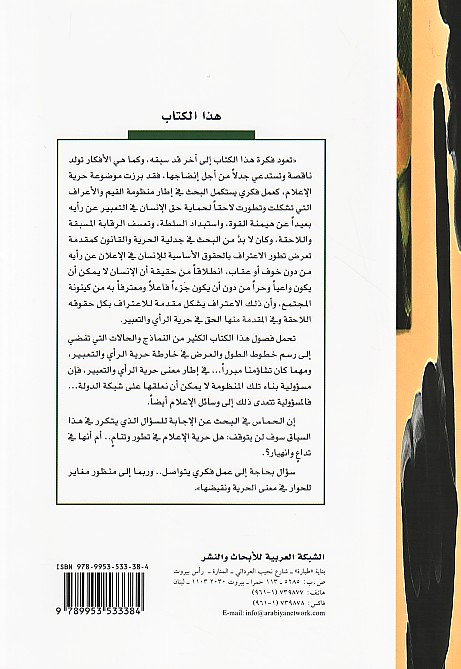 هذا الكتاب
«تعود فكرة هذا الكتاب إلى آخر قد سبقه، وكما هي الأفكار تولد
ناقصة وتستدعي جدلاً من أجل إنضاجها، فقد برزت موضوعة حرية
الإعلام، كعمل فكري يستكمل البحث في إطار منظومة القيم والأعراف
التي تشكلت وتطورت لاحقاً لحماية حق الإنسان في التعبير عن رأيه
بعيداً عن هيمنة القوة، واستبداد السلطة، وتعسف الرقابة المسبقة
واللاحقة، وكان لا بدّ من البحث في جدلية الحرية والقانون كمقدمة
لعرض تطور الاعتراف بالحقوق الأساسية للإنسان في الإعلان عن رأيه
من دون خوف أو عقاب، انطلاقاً من حقيقة أن الإنسان لا يمكن أن
يكون واعياً وحراً من دون أن يكون جزءاً فاعلاً ومعترفاً به من كينونة
المجتمع، وأن ذلك الاعتراف يشكل مقدمة للاعتراف بكل حقوقه
اللاحقة وفي المقدمة منها الحق في حرية الرأي والتعبير.
تحمل فصول هذا الكتاب الكثير من النماذج والحالات التي تقضي
إلى رسم خطوط الطول والعرض في خارطة حرية الرأي والتعبير،
ومهما كان تشاؤمنا مبرراً... في إطار معنى حرية الرأي والتعبير، فإن
مسؤولية بناء تلك المنظومة لا يمكن أن نعلقها على شبكة الدولة...
فالمسؤولية تتعدى ذلك إلى وسائل الإعلام أيضاً.
إن الحماس في البحث عن الإجابة للسؤال الذي يتكرر في هذا
السياق سوف لن يتوقف: هل حرية الإعلام في تطور وتنامٍ.. أم أنها في
تداعٍ وانهيار؟.
سؤال بحاجة إلى عمل فكري يتواصل.. وربما إلى منظور مغاير
للحوار في معنى الحرية ونقيضها».
الشبكة العربية للأبحاث والنشر
بناية «طبارة» ـ شارع نجيب العرداتي ـ المنارة ـ رأس بيروت
ص.ب: ٥٢٨٥ ـ ١١٣ حمرا ـ بيروت ٢٠٣٠ ١١٠٣ ـ لبنان
هاتف: ٧٣٩٨٧٧ (١-٩٦١)
فاكس: ٧٣٩٨٧٨ (١-٩٦١)
E-mail: info@arabiyanetwork.com
ISBN 978-9953-533-38-4
9 789953 533384